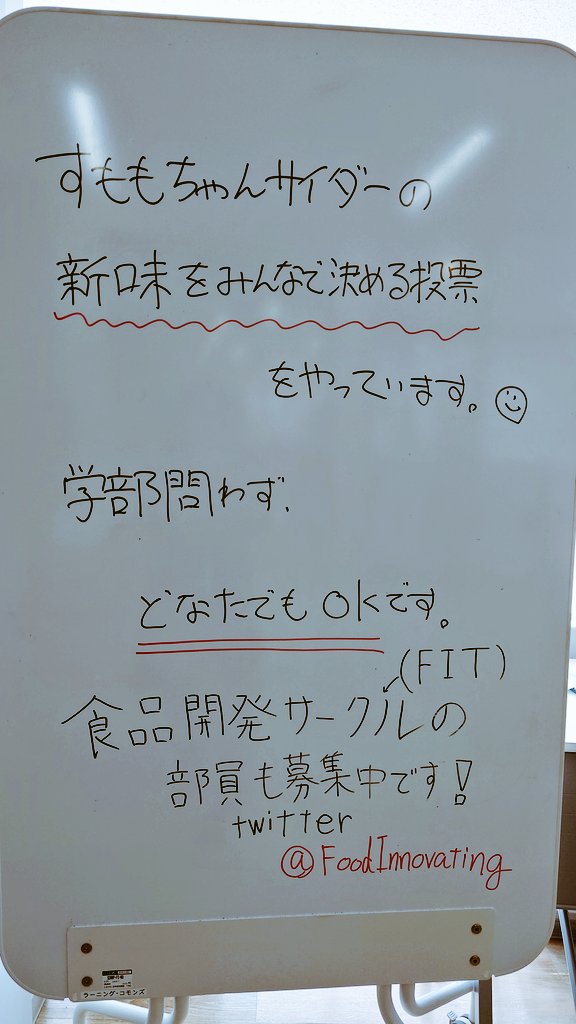 すももちゃんサイダーの
新味をみんなで決める投票
をやっています。
学部問わず、
どなたでもOKです。
(FIT)
食品開発サークルの
部員も募集中です!
twitter
@FoodInnovating
ラーニング・コモンズ